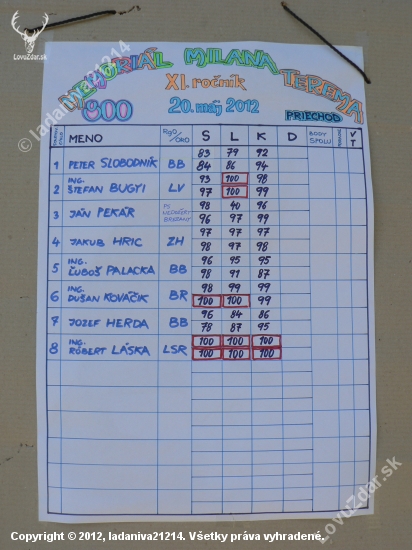 LovuZdar.sk
© ladaniva21214
MEMORIÁL MILANA TEREMA
XI. ročník
800
20. máj 2012
PRIECHOD
MENO RgO/ORD S L K D BODY SPOLU V T
83 79 92
1 PETER SLOBODNÍK BB 84 86 94
ING. 93 100 98
2 ŠTEFAN BUGYI LV 97 100 99
98 40 96
3 JÁN PEKÁR 96 97 99
97 97 97
4 JAKUB HRIC ZH 98 97 98
ING. 96 95 95
5 ĽUBOŠ PALACKA BB 98 91 87
ING. 98 99 99
6 DUŠAN KOVÁČIK BR 100 100 99
96 84 86
7 JOZEF HERDA BB 78 87 95
ING. 100 100 100
8 RÓBERT LÁSKA LSR 100 100 100
LovuZdar.sk
Copyright © 2012, ladaniva21214. Všetky práva vyhradené.